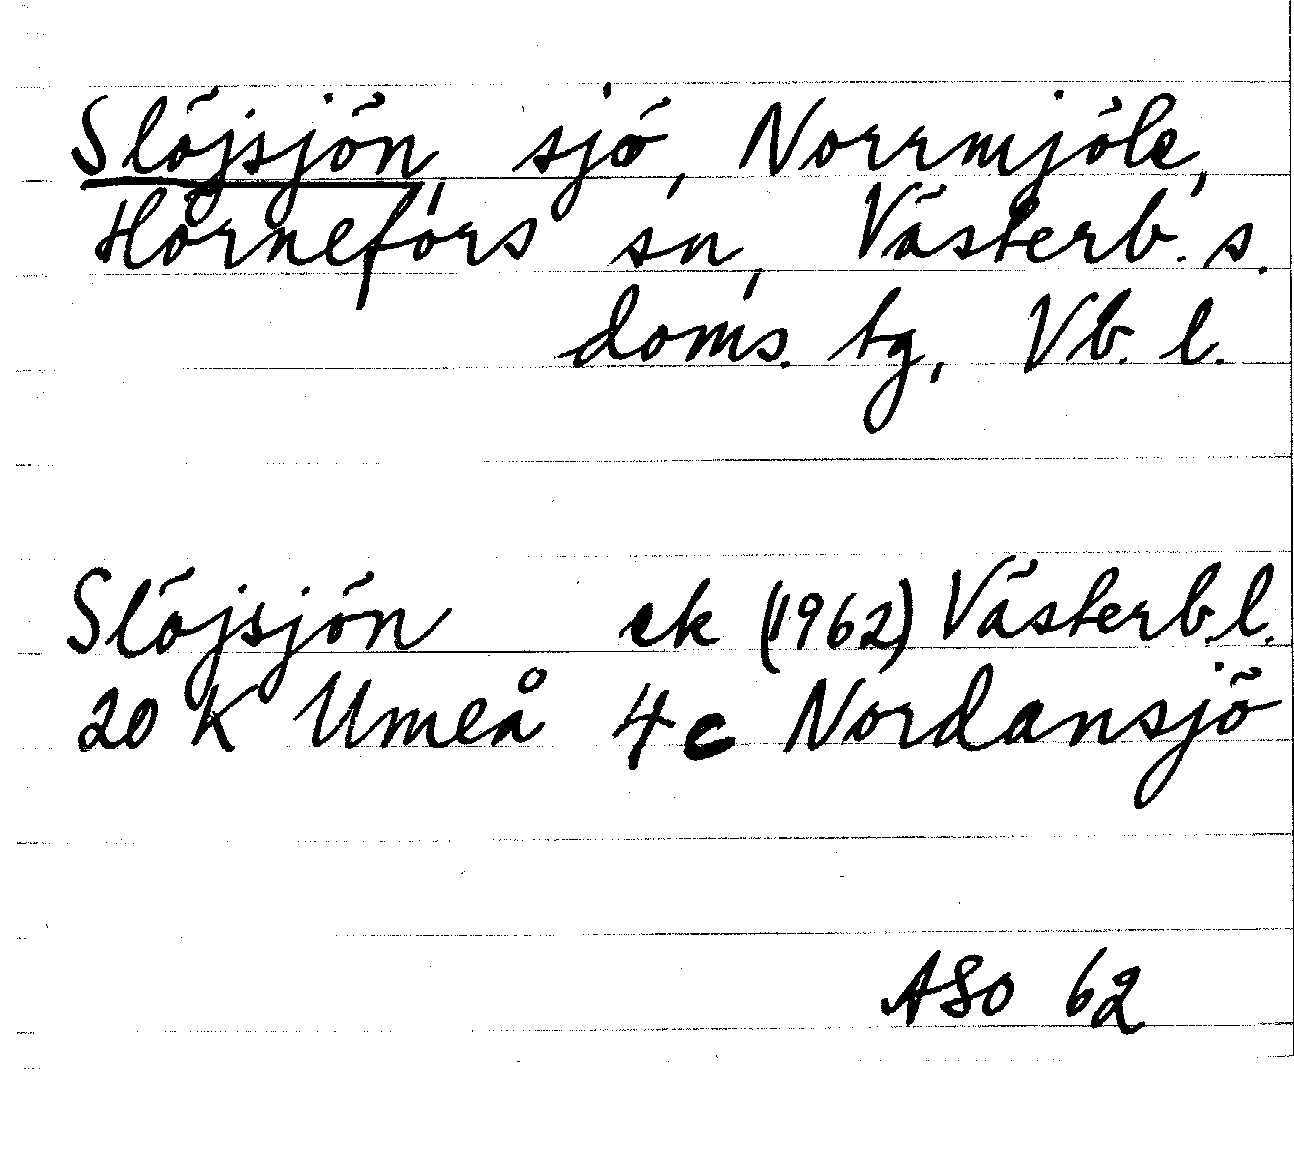 Slöjsjön, sjö, Norrmjöle,
Hörnefors sn, Västerb. s.
doms. tg, Vb. l.
Slöjsjön ek (1962) Västerb.l.
20 K Umeå 4c Nordansjö
ASO 62